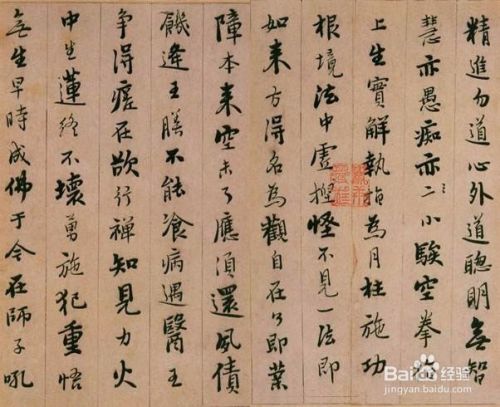 精進勿道心外道聰明無智
慧亦愚痴亦二小騃空拳指
上生實解執指為月枉施功
根境法中虛揑怪不見一法即
如来方得名為觀自在了即業
障本来空未了應須還夙債
饑逢王膳不能飡病遇醫王
爭得瘥在欲行禪知見力火
中生蓮終不壞勇施犯重悟
無生早時成佛于今在師子吼
Baidu经验
jingyan.baidu.com